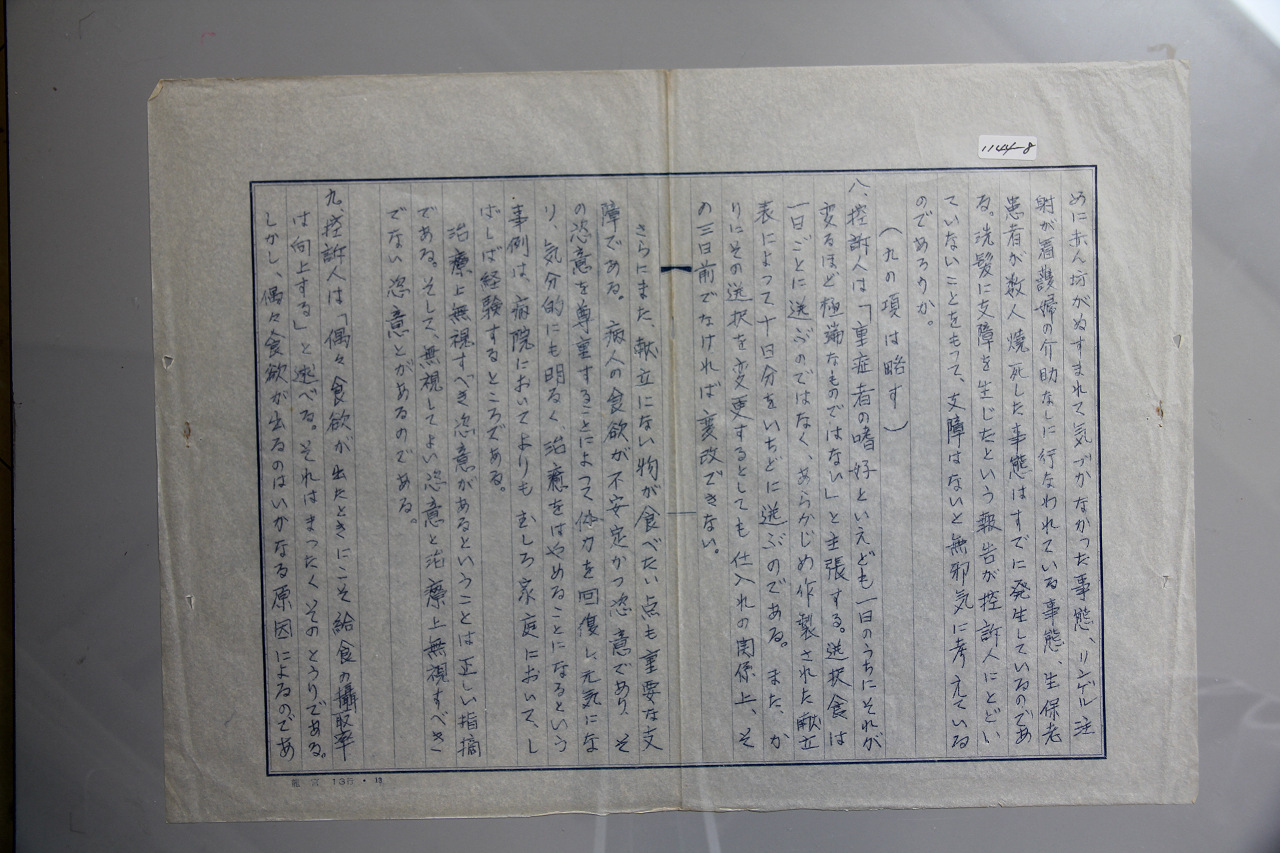 1144-8
めに赤ん坊がぬすまれて気づかなかった事態、リンゲル注
射が看護婦の介助なしに行なわれている事態、生保老
患者が数人焼死した事態はすでに発生しているのであ
る。洗髪に支障を生じたという報告が控訴人にとどい
ていないことをもって、支障はないと無邪気に考えている
のであろうか。
(九の項は略す)
八、控訴人は「重症者の嗜好といえども一日のうちにそれが
変るほど極端なものではない」と主張する。選択食は
一日ごとに選ぶのではなく、あらかじめ作製された献立
表によって十日分をいちどに選ぶのである。また、か
りにその選択を変更するとしても仕入れの関係上、そ
の三日前でなければ変改できない。
さらにまた、献立にない物が食べたい点も重要な支
障である。病人の食欲が不安定かつ恣意であり、そ
の恣意を尊重することによって体力を回復し元気にな
り、気分的にも明るく、治癒をはやめることになるという
事例は、病院においてよりもむしろ家庭において、し
ばしば経験するところである。
治療上無視すべき恣意があるということは正しい指摘
である。そして、無視してよい恣意と治療上無視すべき
でない恣意とがあるのである。
九、控訴人は「偶々食欲が出たときにこそ給食の攝取率
は向上する」と述べる。それはまったくそのとうりである。
しかし、偶々食欲が出るのはいかなる原因によるのであ
13B・13